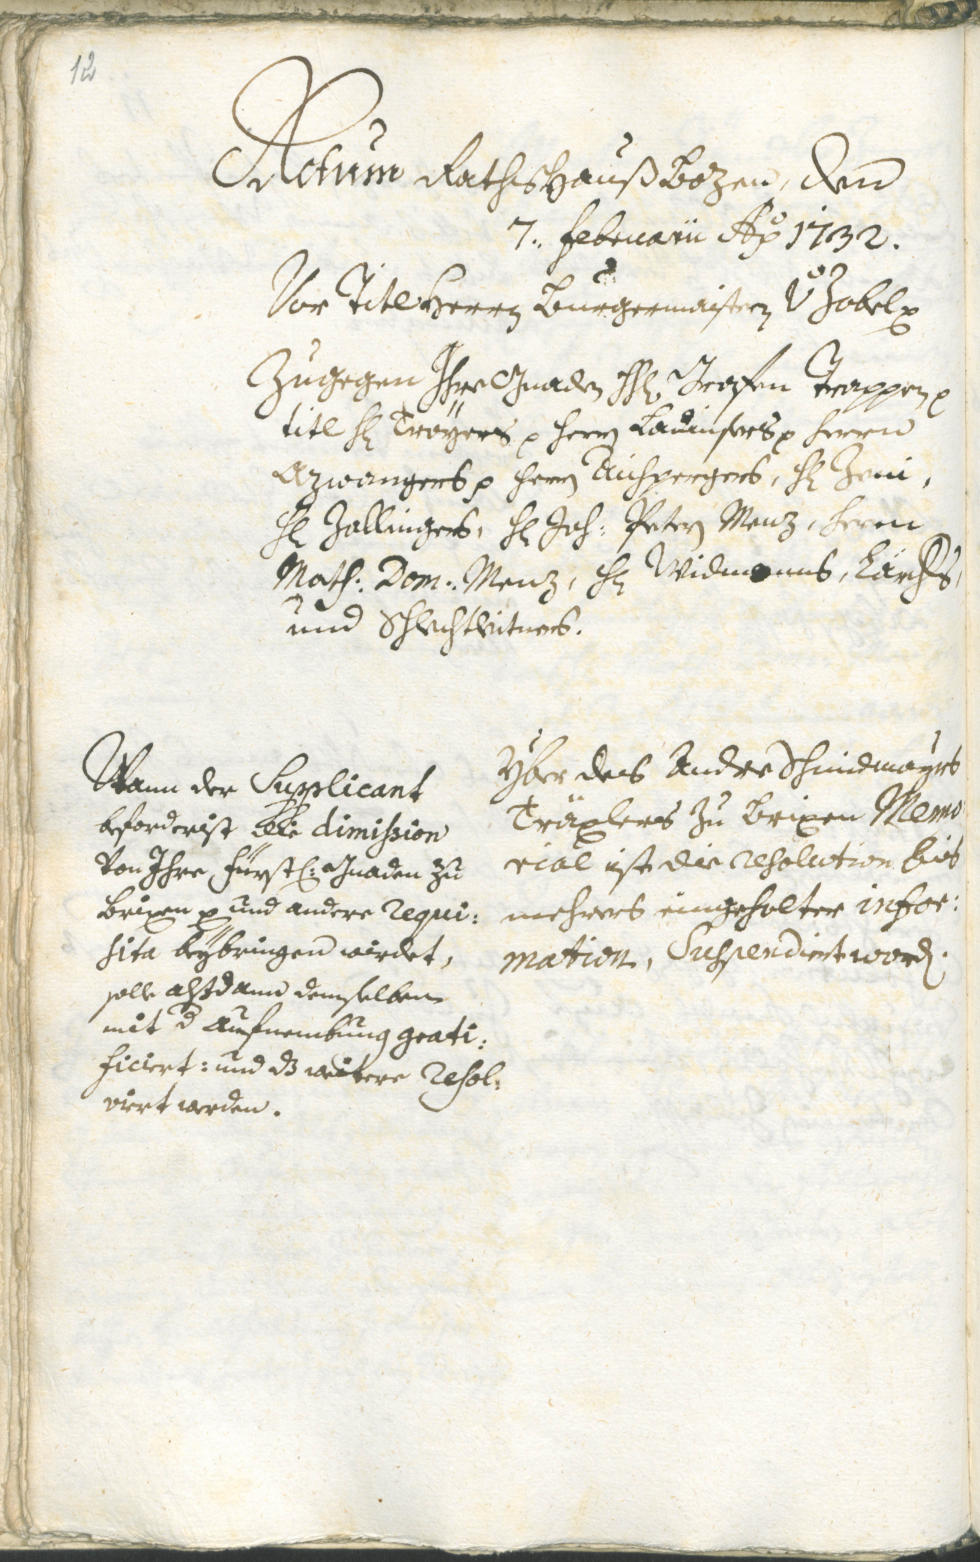 12
Actum Rathshauß Bozen, den
7. Februarii Aõ p 1732.
Vor Titl Herrn Burgermaistern v Zobel p
Zugegen Ihre Gnaden H: Grafen Trappen p
titl H: Troyers p Herrn Lauinsers p Herrn
Azwangers p Herrn Aichpergers, H: Zeni,
H: Zallingers, H: Joh: Petern Menz, Herrn
Math: Dom: Menz, H: Widmanns, Lärchs,
und Schlechtleitners.
Wann der Supplicant
beforderist die dimission
von Ihre Fürstl: Gnaden zu
Brixen p und andere requi:
sita beybringen wirdet,
solle alßdann demselben
mit d Aufnembung grati:
ficiert: und dz weitere resol:
viert werden.
Yber des Andre Schmidmayrs
Träxlers zu Brixen Memo
rial ist die resolution bis
mehrers eingeholter infor:
mation, Suspendiert word.